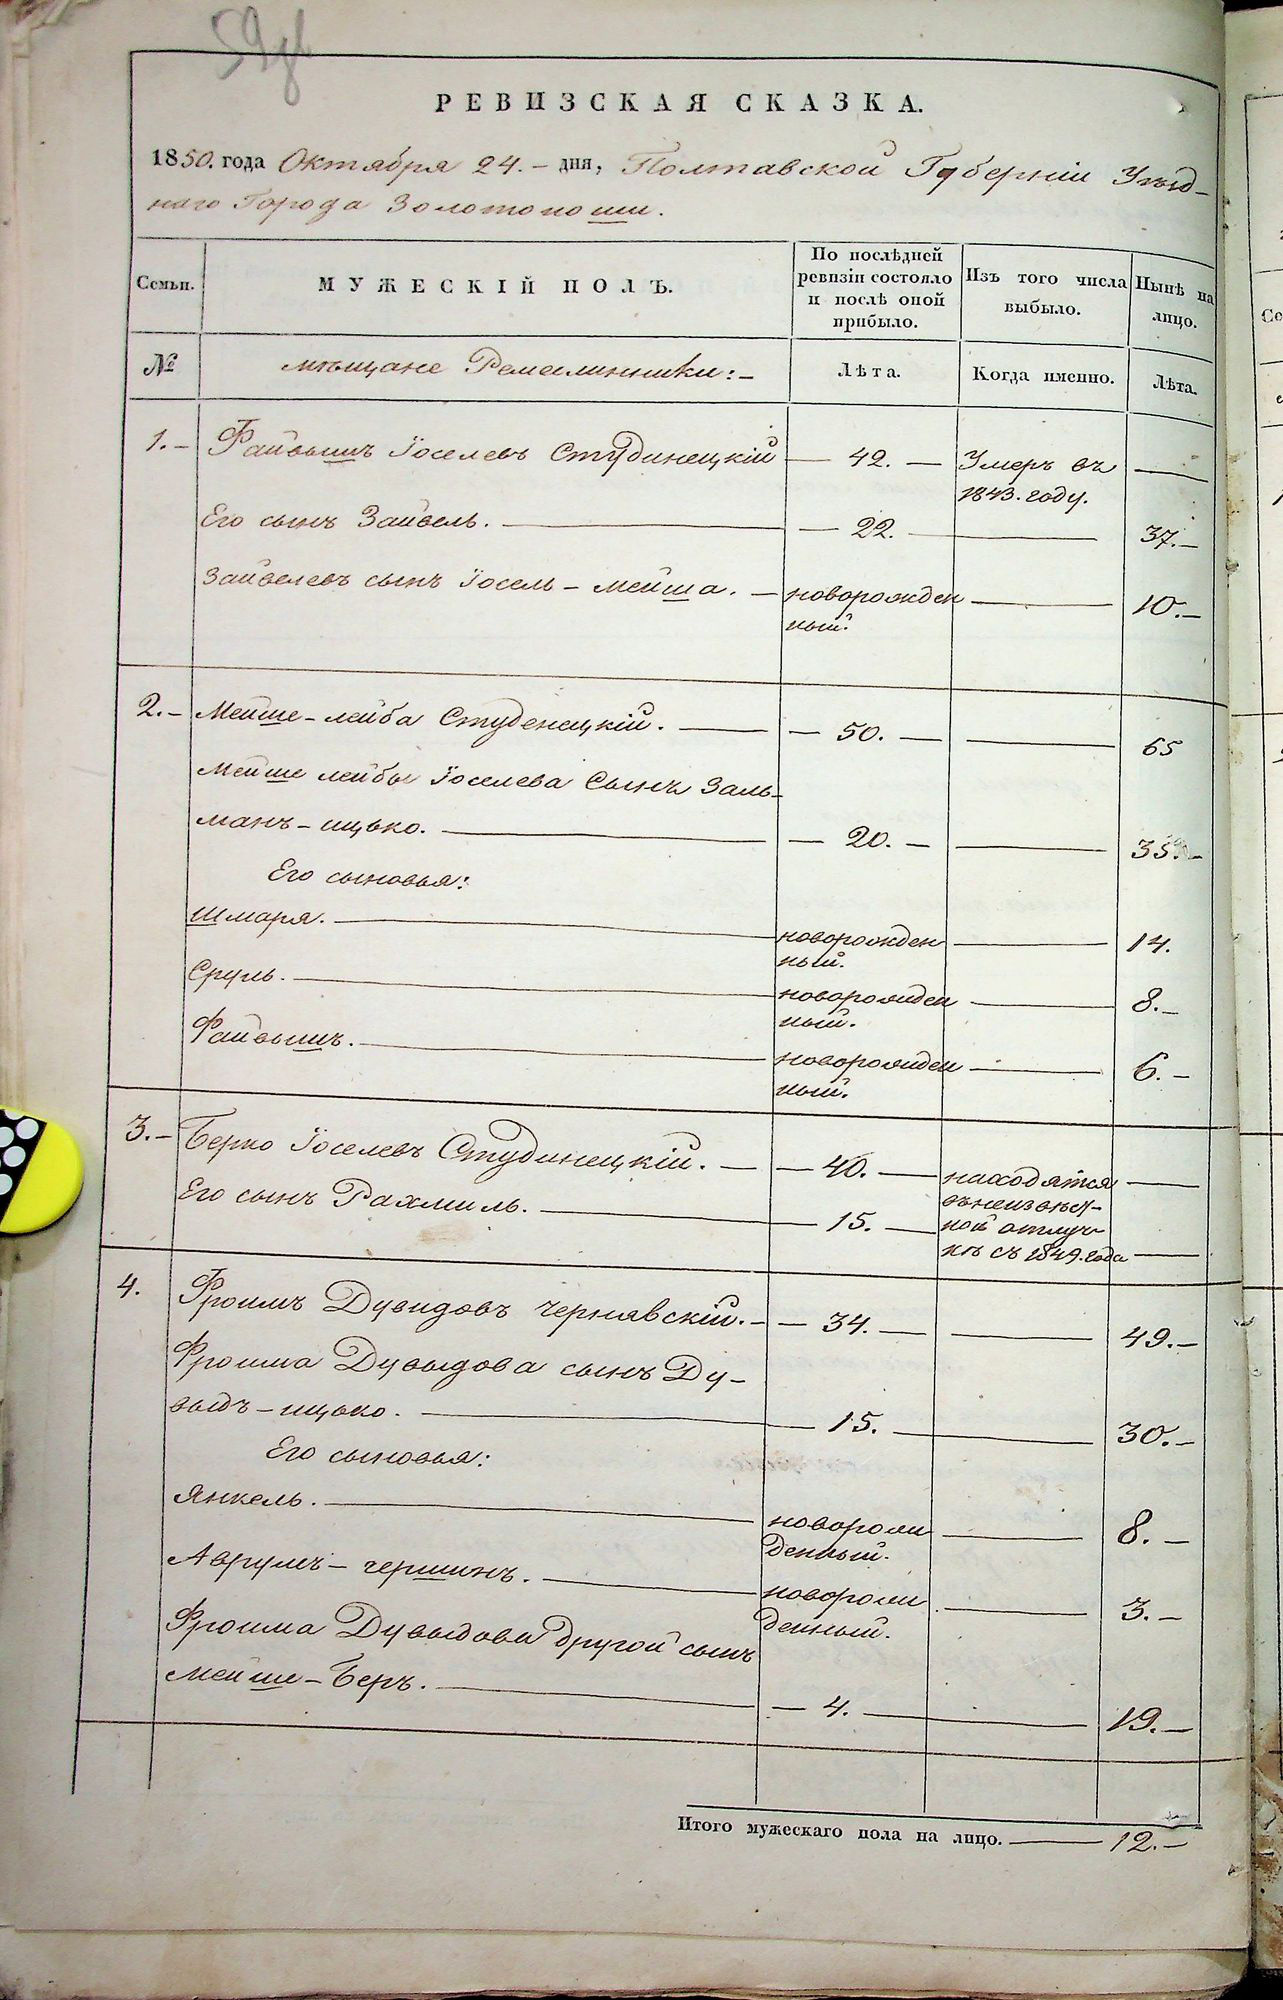 59об
РЕВИЗСКАЯ СКАЗКА.
1850. года Октября 24. – дня, Полтавской Губерніи Уѣзд-
наго Города Золотоноши.
Семьи.
МУЖЕСКІЙ ПОЛЪ.
По послѣдней
ревизіи состояло
и послѣ оной
прибыло.
Изъ того числа
выбыло.
Нынѣ на
лицо.
№
мѣщане Ремеслинники: –
Лѣта.
Когда именно.
Лѣта.
1. – Файвышъ Іоселевъ Студинецкій — 42. — Умеръ въ —
1843. году.
Его сынъ Зайвель. — 22. — 37. –
Зайвелевъ сынъ Іосель – мейша. — новорожден — 10. –
ный.
2. – Мейше – лейба Студенецкій. — 50. — 65
Мейше лейбы Іоселева Сынъ Заль-
манъ – ицько. — 20. — 35. –
Его сыновья:
Шмаря. — новорожден — 14.
ный.
Сруль. — новорожден — 8. –
ный.
Файвышъ. — новорожден — 6. –
ный.
3. – Берко Іоселевъ Студинецкій. — 40. — находятся —
Его сынъ Рахмиль. — 15. — въ неизвѣст-
ной отлуч-
кѣ съ 1849. года —
4. Фроимъ Дувидовъ Чернявскій. — 34. — 49. –
Фроима Дувыдова сынъ Ду-
выдъ – ицько. — 15. — 30. –
Его сыновья:
Янкель. — новорож — 8. –
денный.
Аврумъ – гершинъ. — новорож — 3. –
денный.
Фроима Дувыдова другой сынъ
Мейше – Беръ. — 4. — 19. –
Итого мужескаго пола на лицо. — 12. –